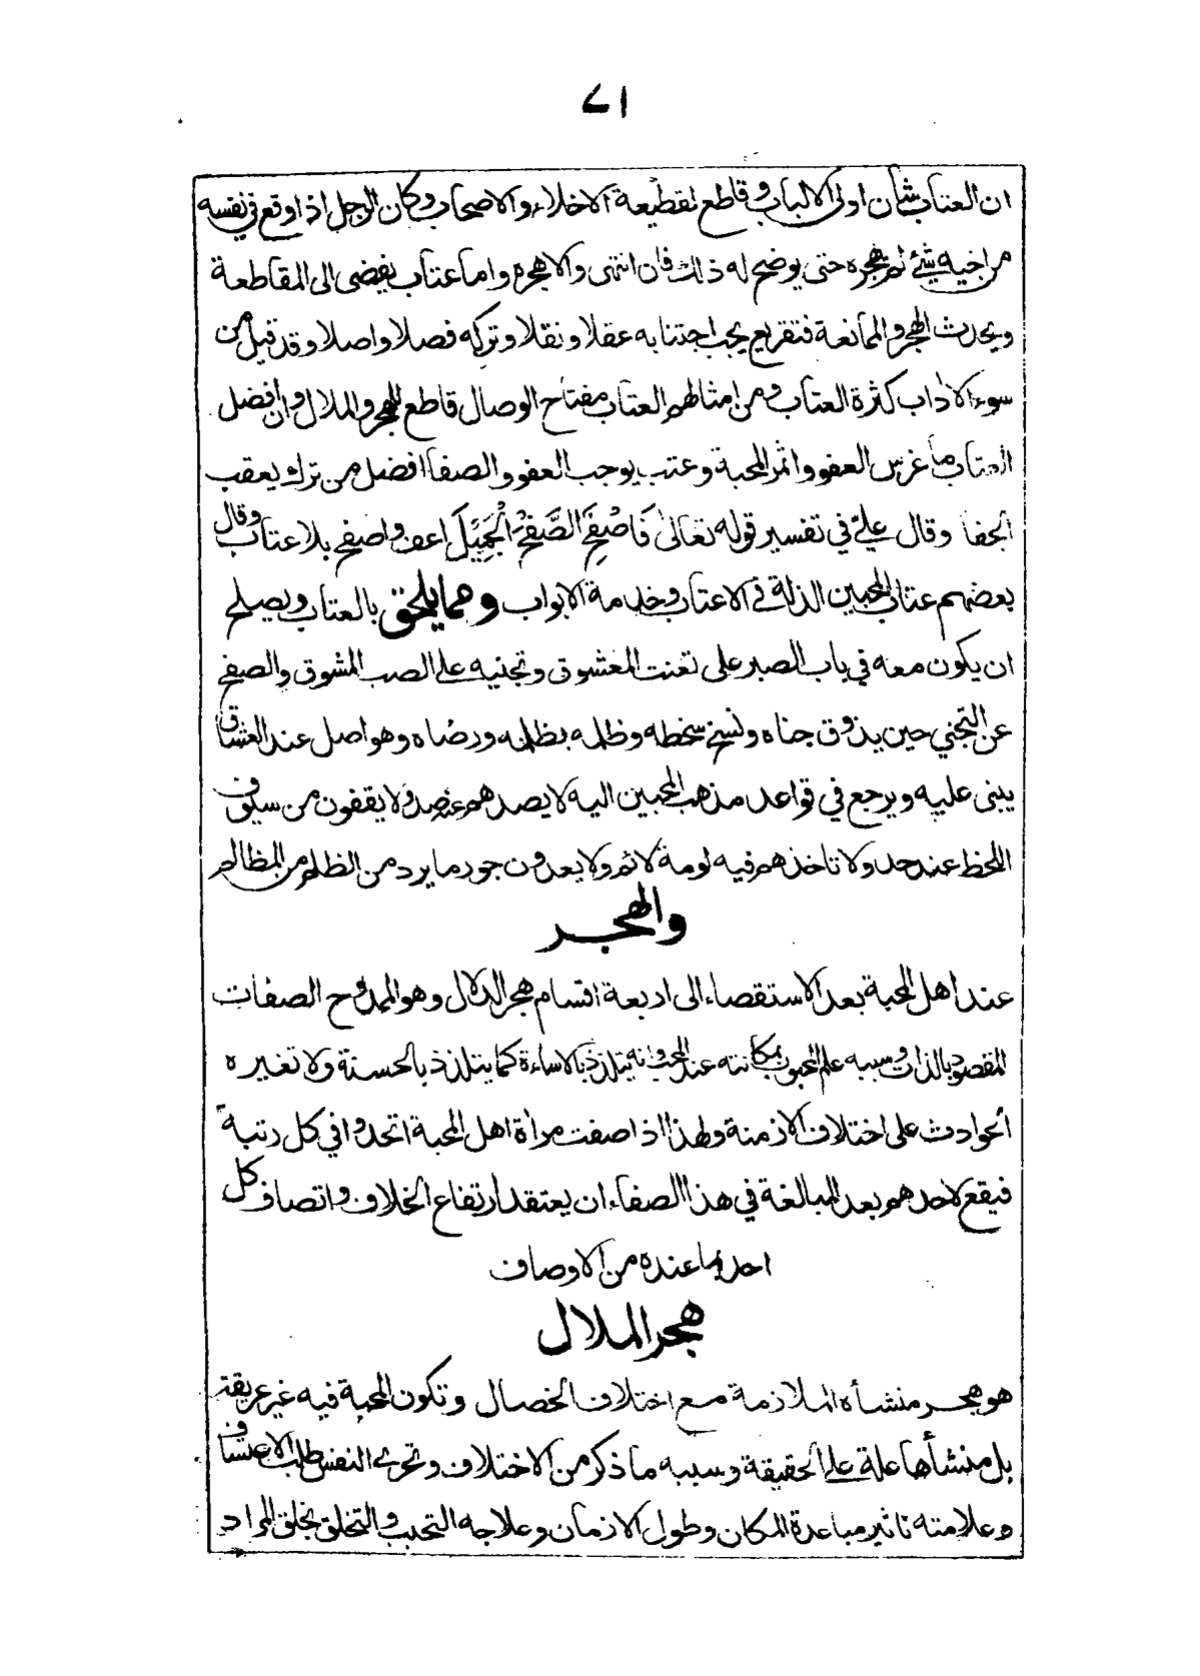 ٧١
ان العتاب شأن اولى الالباب وقاطع لقطيعة الاخلاء والاصحاب وكان الرجل اذا وقع في نفسه
من اخيه شئ لم يهجره حتى يوضح له ذلك فان انتهى والا هجره واما عتاب يفضى الى المقاطعة
ويحدث الهجر والممانعة فتقريع يجب اجتنابه عقلا ونقلا وتركه فصلا واصلا وقد قيل من
سوء الاداب كثرة العتاب ومن امثالهم العتاب مفتاح الوصال قاطع للهجر والملال وان افضل
العتاب ما غرس العفو واثمر المحبة وعتب يوجب العفو والصفا افضل من ترك يعقب
الجفا وقال علي في تفسير قوله تعالى فَاصْفَحِ الصَّفْحَ الْجَمِيلَ اعف واصفح بلا عتاب وقال
بعضهم عتاب المحبين الذلة في الاعتاب وخدمة الابواب ومما يلحق بالعتاب ويصلح
ان يكون معه في باب الصبر على تعنت المعشوق وتجنيه على الصب المشوق والصفح
عن التجني حين يذوق جناه ونسخ سخطه وظلمه بظلمه ورضاه وهو اصل عند العشاق
يبنى عليه ويرجع في قواعد مذهب المحبين اليه لا يصدهم عنه صد ولا يقفون من سيوف
اللحظ عند حد ولا تاخذهم فيه لومة لائم ولا يعدون جور ما يرد من الظلم من المظالم
والهجر
عند اهل المحبة بعد الاستقصاء الى اربعة اقسام هجر الدلال وهو الممدوح الصفات
المقصود بالذات وسببه علم المحبوب بمكانته عند المحب وانه يتلذذ بالاساءة كما يتلذذ بالحسنة ولا تغيره
الحوادث على اختلاف الازمنة ولهذا اذا صفت مراة اهل المحبة اتحدوا في كل رتبة
فيقع لاحدهم بعد المبالغة في هذا الصفاء ان يعتقد ارتفاع الخلاف واتصاف كل
احد بما عنده من الاوصاف
هجر الملال
هو هجر منشأه الملازمة مع اختلاف الخصال وتكون المحبة فيه غير عريقة
بل منشأها علة على الحقيقة وسببه ما ذكر من الاختلاف وتحرى النفس طلب الاعتساف
وعلامته تاثير مباعدة المكان وطول الازمان وعلاجه التحبب والتخلق بخلق المراد